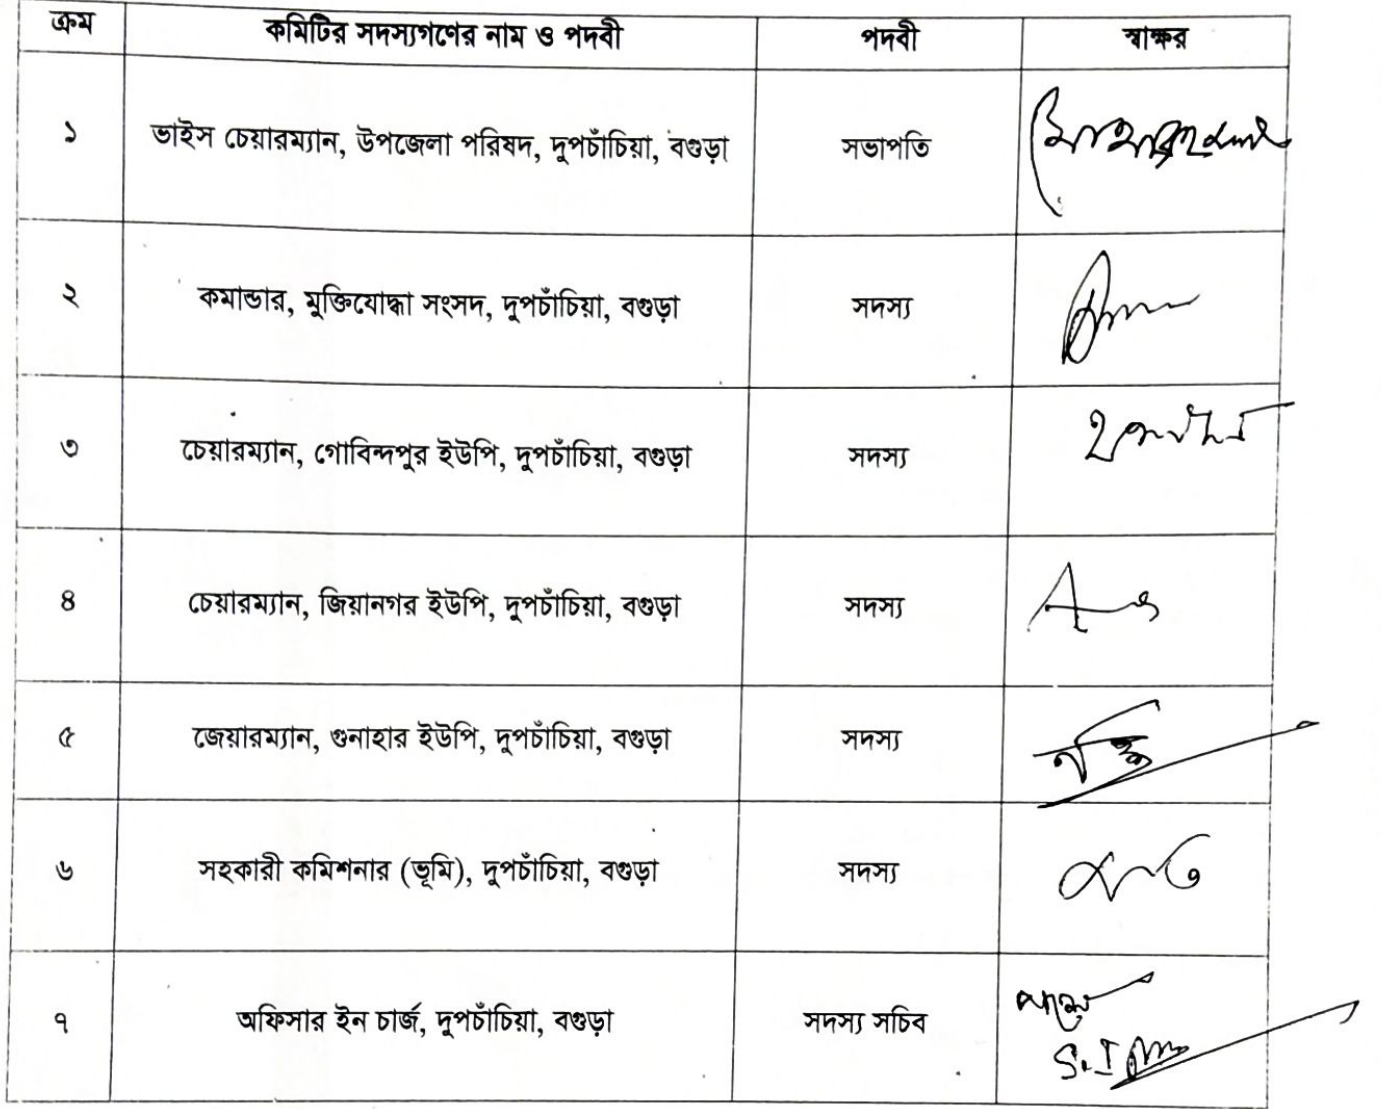 ক্রম কমিটির সদস্যগণের নাম ও পদবী পদবী স্বাক্ষর
১ ভাইস চেয়ারম্যান, উপজেলা পরিষদ, দুপচাঁচিয়া, বগুড়া সভাপতি
২ কমান্ডার, মুক্তিযোদ্ধা সংসদ, দুপচাঁচিয়া, বগুড়া সদস্য
৩ চেয়ারম্যান, গোবিন্দপুর ইউপি, দুপচাঁচিয়া, বগুড়া সদস্য
৪ চেয়ারম্যান, জিয়ানগর ইউপি, দুপচাঁচিয়া, বগুড়া সদস্য
৫ জেয়ারম্যান, গুনাহার ইউপি, দুপচাঁচিয়া, বগুড়া সদস্য
৬ সহকারী কমিশনার (ভূমি), দুপচাঁচিয়া, বগুড়া সদস্য
৭ অফিসার ইন চার্জ, দুপচাঁচিয়া, বগুড়া সদস্য সচিব
S.I